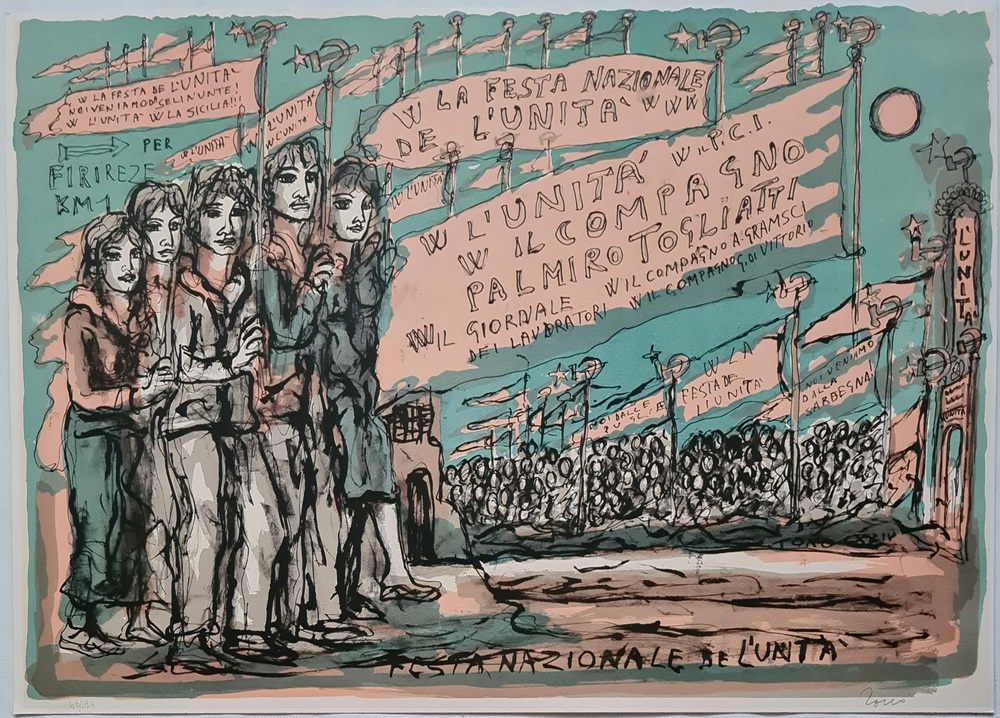 W LA FESTA DE L'UNITA'
W L'UNITA' W LA SICILIA!!!
PER
FIRIREZE
KM 1
W L'UNITA'
L'UNITA'
W L'UNITA'
W LA FESTA NAZIONALE
DE L'UNITA' W W W
W L'UNITA'
W L'UNITA' W IL P.C.I.
W IL COMPAGNO
PALMIRO TOGLIATTI
W IL GIORNALE W IL COMPAGNO A. GRAMSCI
DEI LAVORATORI W IL COMPAGNO G. DI VITTORIO
W LA
FESTA DE
L'UNITA'
NOI VENIAMO
DALLA
SARDEGNA!
NOI DALLE
L'UNITA'
UNITA'
FESTA NAZIONALE DE L'UNTA'